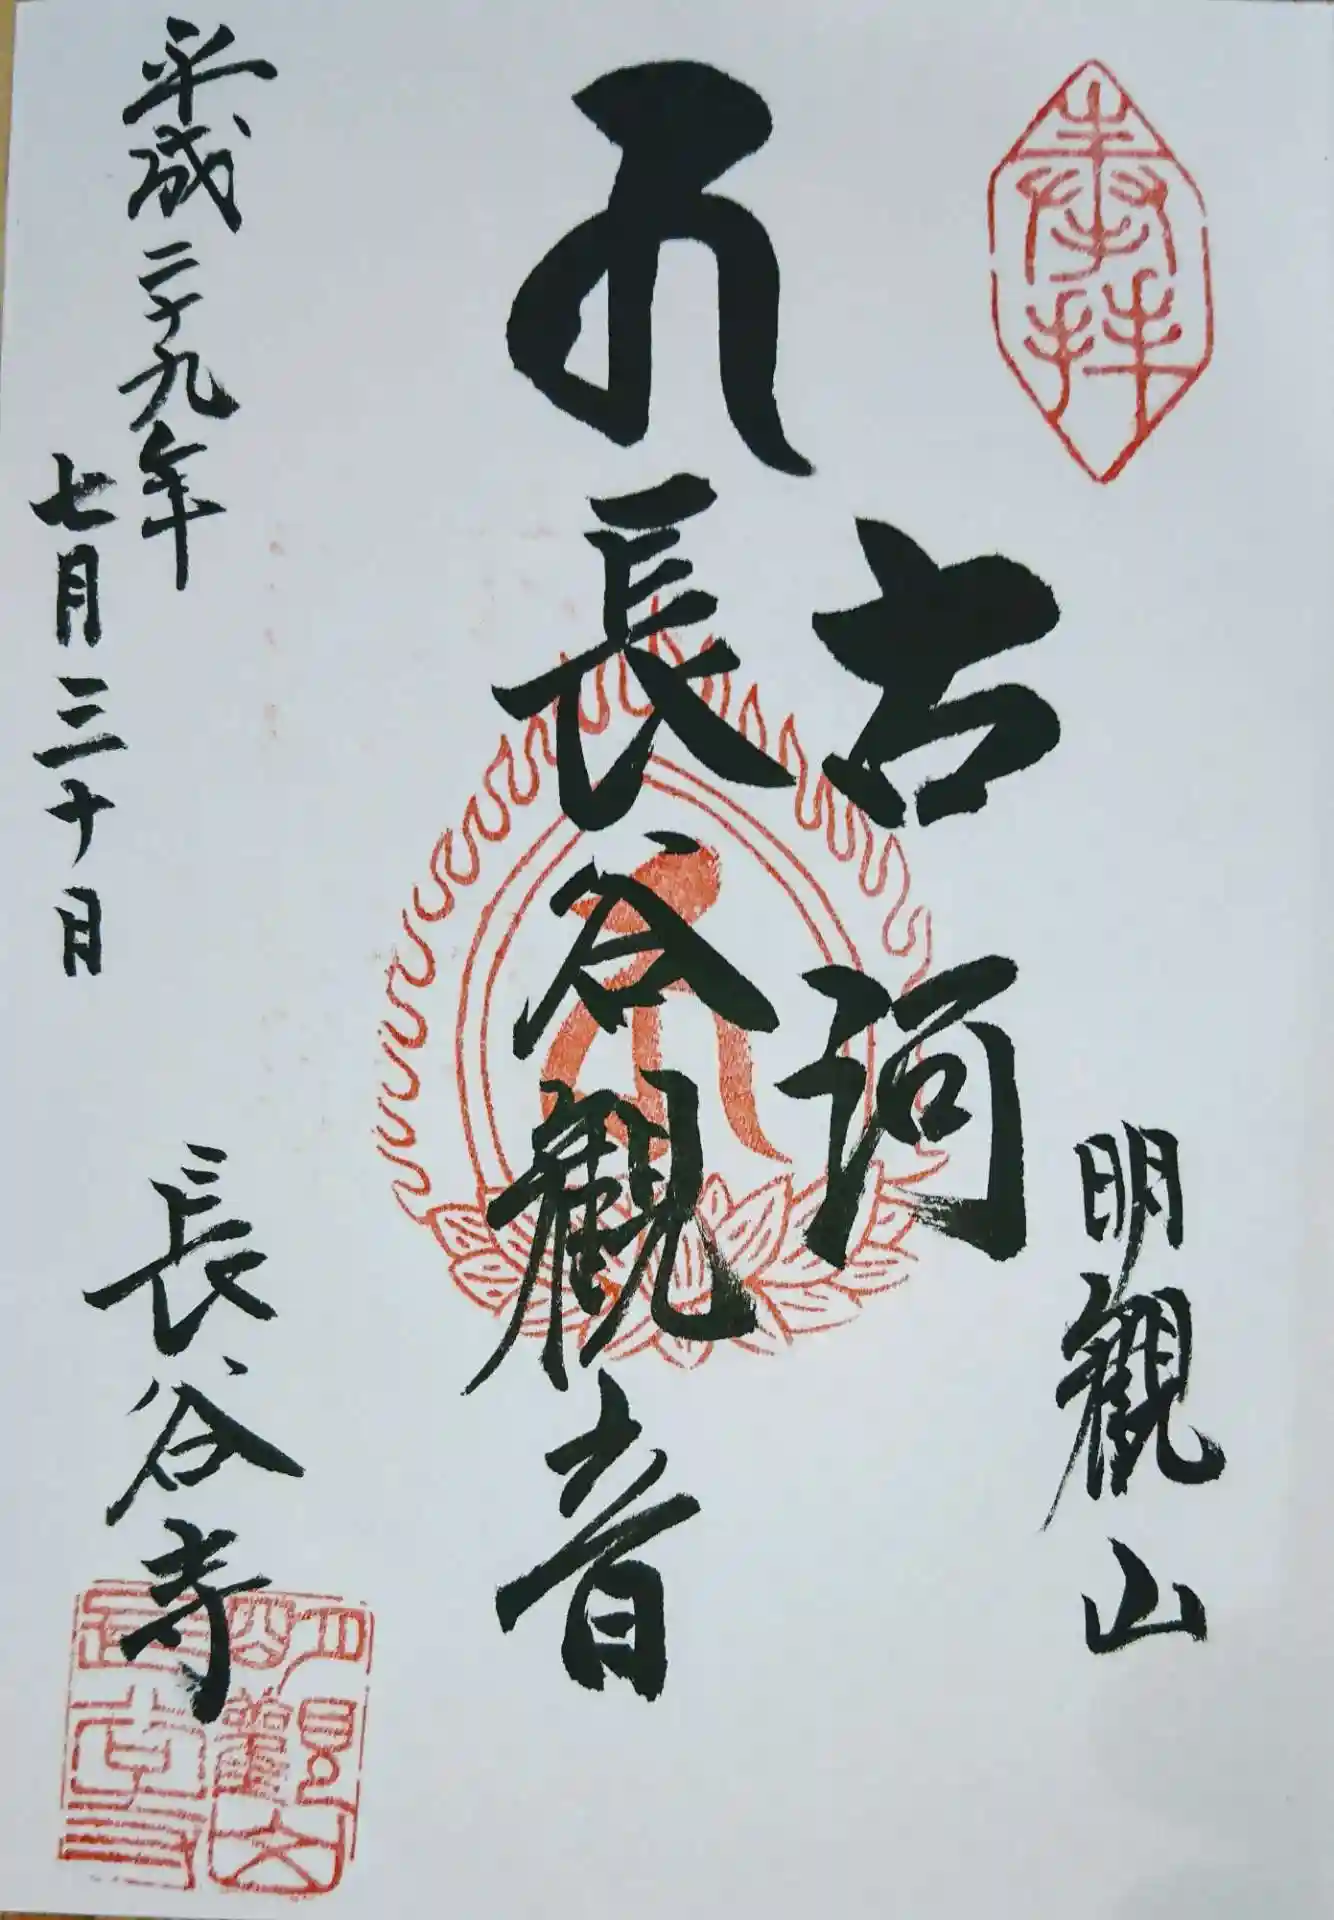 奉拝
明観山
古河
長谷観音
平成二十九年
七月三十日
長谷寺